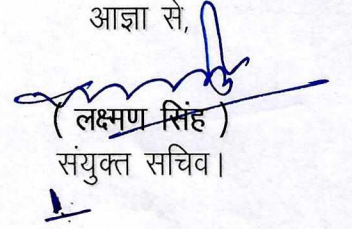 आज्ञा से,
( लक्ष्मण सिंह )
संयुक्त सचिव।